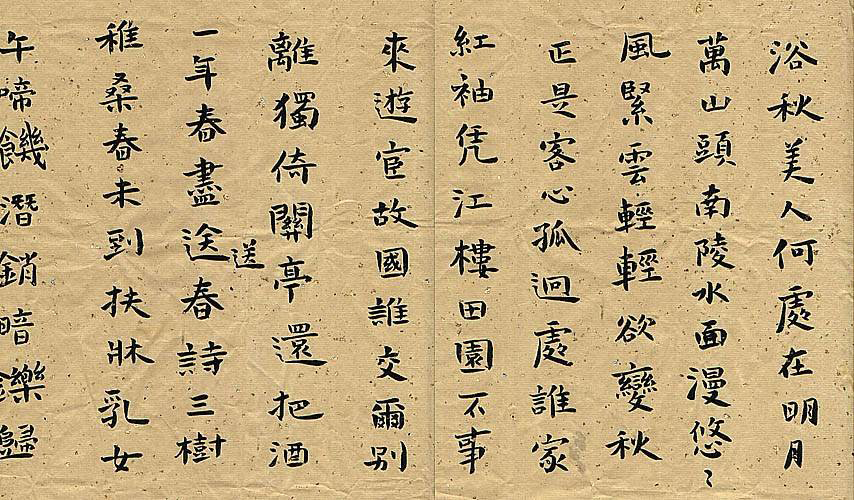 浴秋美人何處在明月
萬山頭南陵水面漫悠〻
風緊雲輕輕欲變秋
正是客心孤迥處誰家
紅袖凭江樓田園不事
來遊宦故國誰交爾別
離獨倚關亭還把酒
送
一年春盡送春詩三樹
稚桑春未到扶牀乳女
午啼饑潛銷暗鑠歸